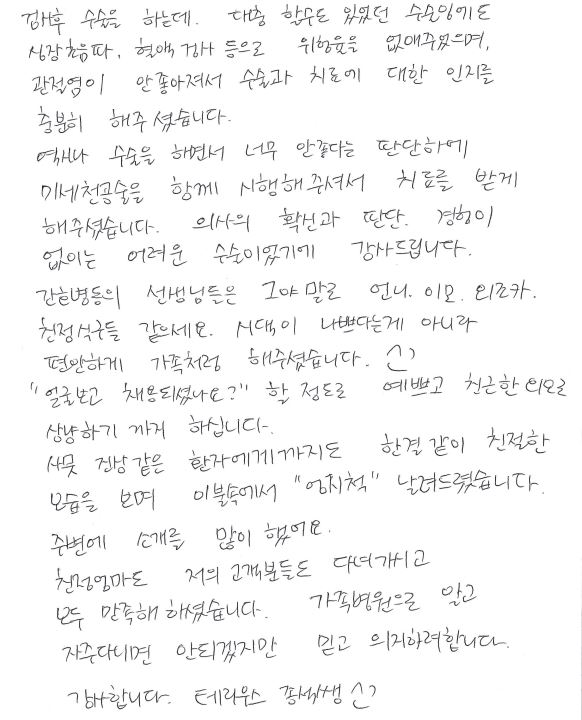 검사후 수술을 하는데. 대충 할수도 있었던 수순임에도
심장초음파, 혈액검사 등으로 위험율을 없애주었으며,
관절염이 안좋아져서 수술과 치료에 대한 인지를
충분히 해주셨습니다.
역시나 수술을 해면서 너무 안좋다는 판단하에
미세천공술을 함께 시행해주셔서 치료를 받게
해주셨습니다. 의사의 확신과 판단. 경험이
없이는 어려운 수술이었기에 감사드립니다.
간호병동의 선생님들은 그야말로 언니. 이모. 외조카.
친정식구들 같으세요. 시댁이 나쁘다는게 아니라
편안하게 가족처럼 해주셨습니다.
"얼굴보고 채용되셨나요?" 할 정도로 예쁘고 친근한 외모로
상냥하기 까지 하십니다.
사뭇 진상같은 환자에게까지도 한결같이 친절한
모습을 보며 이불속에서 "엄지척" 날려드렸습니다.
주변에 소개를 많이 했어요.
친정엄마도 저의 고객분들도 다녀가시고
모두 만족해 하셨습니다. 가족병원으로 알고
자주다니면 안되겠지만 믿고 의지하려합니다.
감사합니다. 테라우스